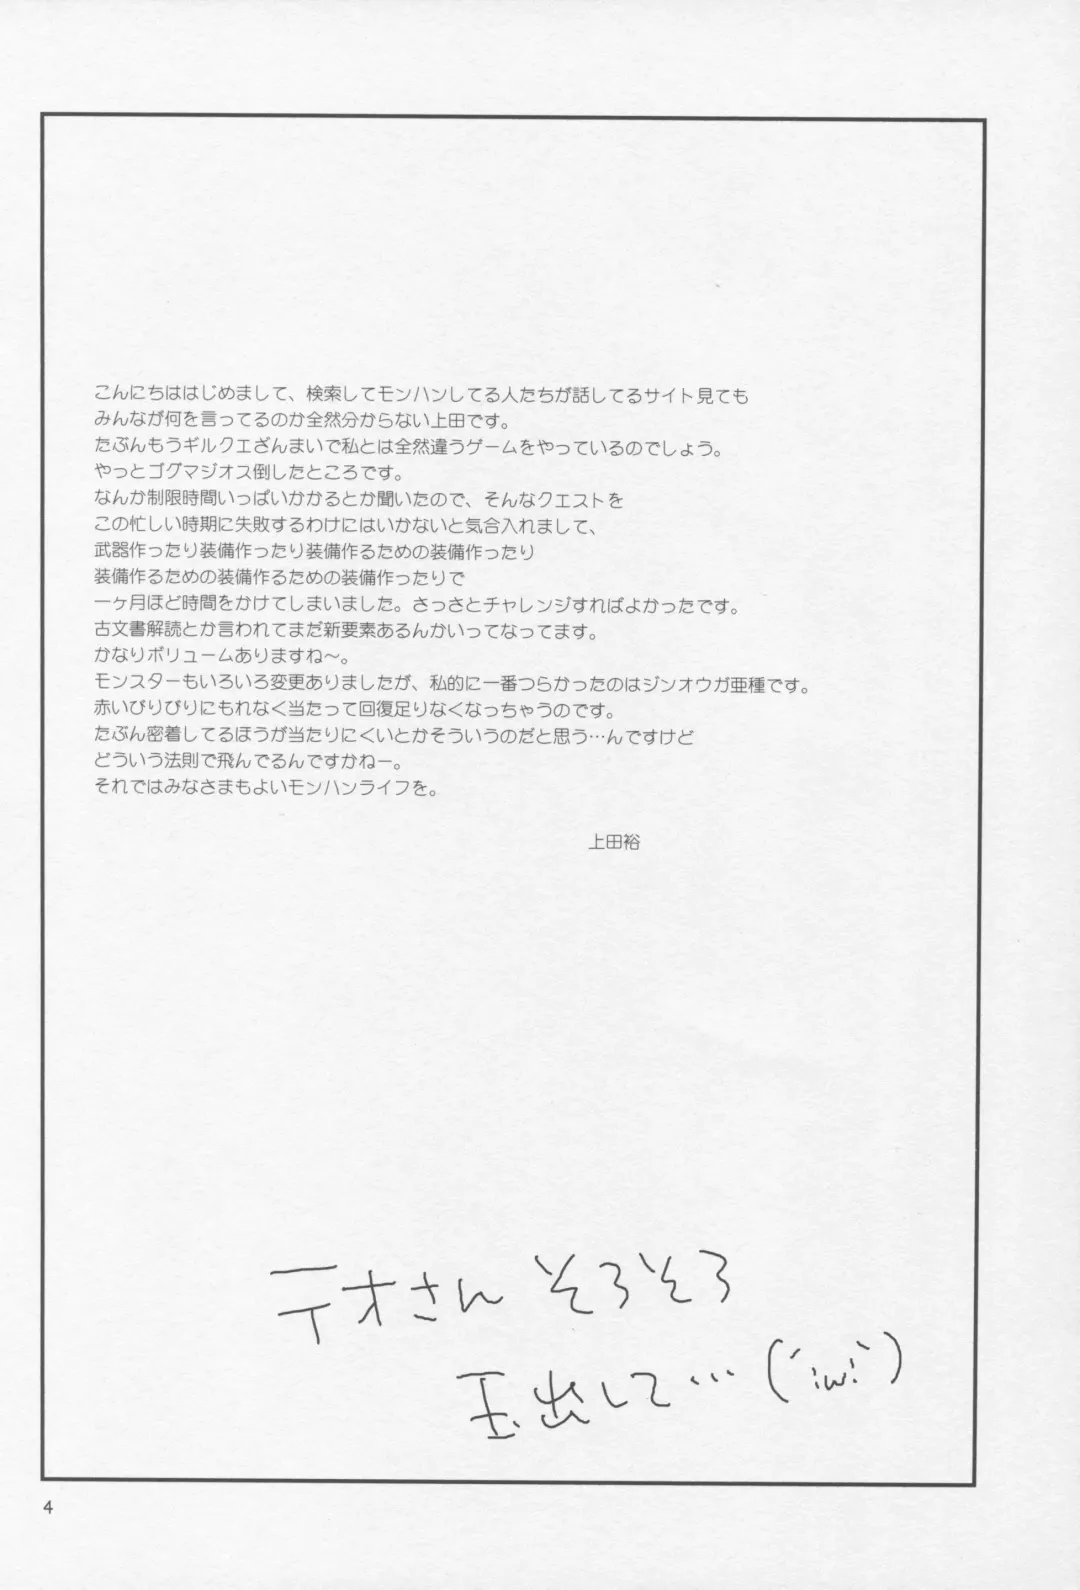 こんにちははじめまして、検索してモンハンしてる人たちが話してるサイト見ても
みんなが何を言ってるのか全然分からない上田です。
たぶんもうギルクエざんまいで私とは全然違うゲームをやっているのでしょう。
やっとゴグマジオス倒したところです。
なんか制限時間いっぱいかかるとか聞いたので、そんなクエストを
この忙しい時期に失敗するわけにはいかないと気合入れまして、
武器作ったり装備作ったり装備作るための装備作ったり
装備作るための装備作るための装備作ったりで
一ヶ月ほど時間をかけてしまいました。さっさとチャレンジすればよかったです。
古文書解読とか言われてまだ新要素あるんかいってなってます。
かなりボリュームありますね〜。
モンスターもいろいろ変更ありましたが、私的に一番つらかったのはジンオウガ亜種です。
赤いびりびりにもれなく当たって回復足りなくなっちゃうのです。
たぶん密着してるほうが当たりにくいとかそういうのだと思う…んですけど
どういう法則で飛んでるんですかねー。
それではみなさまもよいモンハンライフを。
上田裕
テオさん そろそろ
玉出して… (´;ω;`)
4